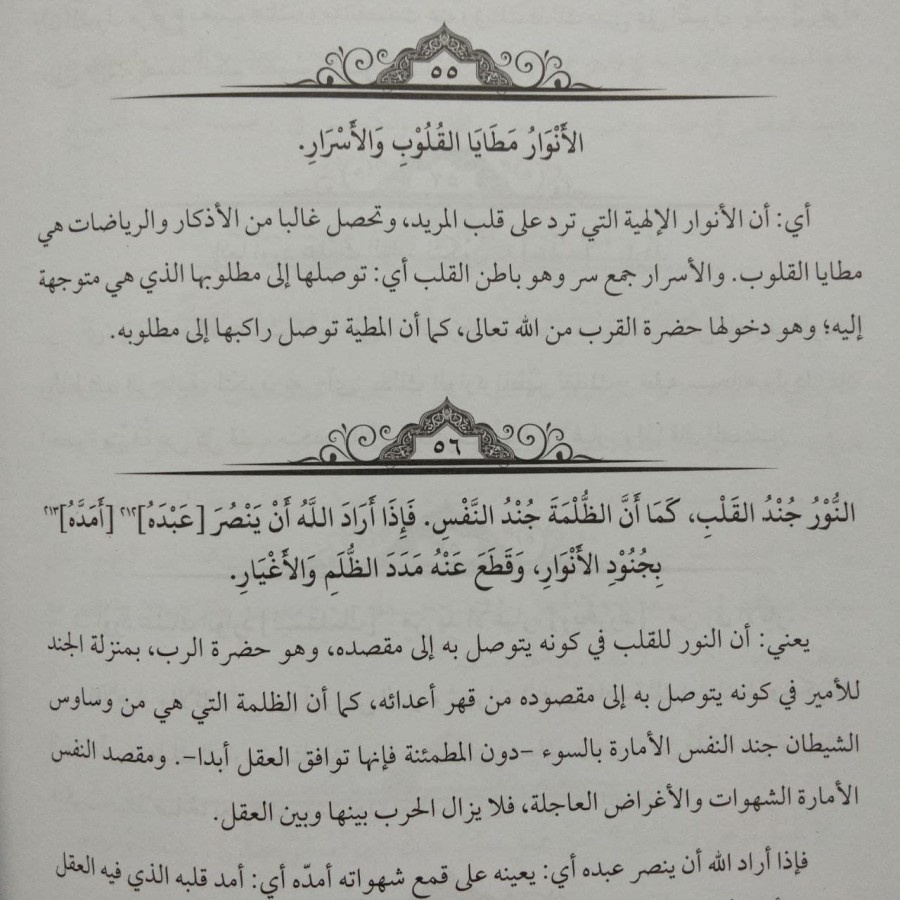 ٥٥
الأَنْوَارُ مَطَايَا القُلُوْبِ وَالأَسْرَارِ.
أي: أن الأنوار الإلهية التي ترد على قلب المريد، وتحصل غالبا من الأذكار والرياضات هي
مطايا القلوب. والأسرار جمع سر وهو باطن القلب أي: توصلها إلى مطلوبها الذي هي متوجهة
إليه؛ وهو دخولها حضرة القرب من الله تعالى، كما أن المطية توصل راكبها إلى مطلوبه.
٥٦
النُّوْرُ جُنْدُ القَلْبِ، كَمَا أَنَّ الظُّلْمَةَ جُنْدُ النَّفْسِ. فَإِذَا أَرَادَ اللَّهُ أَنْ يَنْصُرَ [عَبْدَهُ]٢١٢ [أَمَدَّهُ]٢١٣
بِجُنُوْدِ الأَنْوَارِ، وَقَطَعَ عَنْهُ مَدَدَ الظُّلَمِ وَالأَغْيَارِ.
يعني: أن النور للقلب في كونه يتوصل به إلى مقصده، وهو حضرة الرب، بمنزلة الجند
للأمير في كونه يتوصل به إلى مقصوده من قهر أعدائه، كما أن الظلمة التي هي من وساوس
الشيطان جند النفس الأمارة بالسوء -دون المطمئنة فإنها توافق العقل أبدا-. ومقصد النفس
الأمارة الشهوات والأغراض العاجلة، فلا يزال الحرب بينها وبين العقل.
فإذا أراد الله أن ينصر عبده أي: يعينه على قمع شهواته أمدّه أي: أمد قلبه الذي فيه العقل